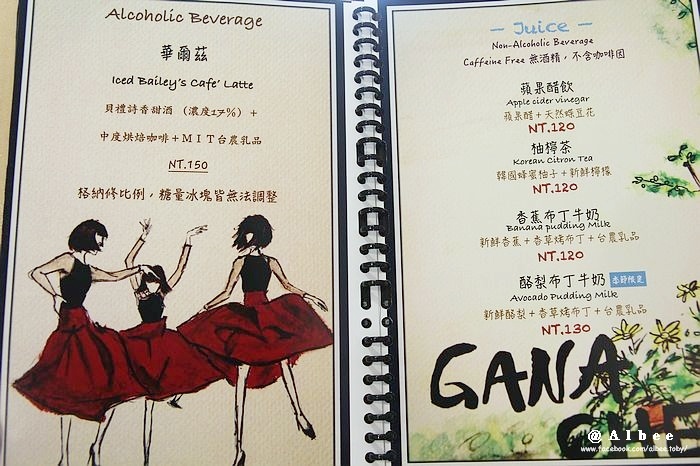 Alcoholic Beverage
華爾茲
Iced Bailey's Cafe' Latte
貝禮詩香甜酒（濃度17%）＋
中度烘焙咖啡＋MIT台農乳品
NT.150
格納修比例，糖量冰塊皆無法調整
— Juice —
Non-Alcoholic Beverage
Caffeine Free 無酒精，不含咖啡因
蘋果醋飲
Apple cider vinegar
蘋果醋＋天然蝶豆花
NT.120
柚檸茶
Korean Citron Tea
韓國蜂蜜柚子＋新鮮檸檬
NT.120
香蕉布丁牛奶
Banana pudding Milk
新鮮香蕉＋香草烤布丁＋台農乳品
NT.120
酪梨布丁牛奶 季節限定
Avocado Pudding Milk
新鮮酪梨＋香草烤布丁＋台農乳品
NT.130
GANA
@Albee
www.facebook.com/albee.toby/